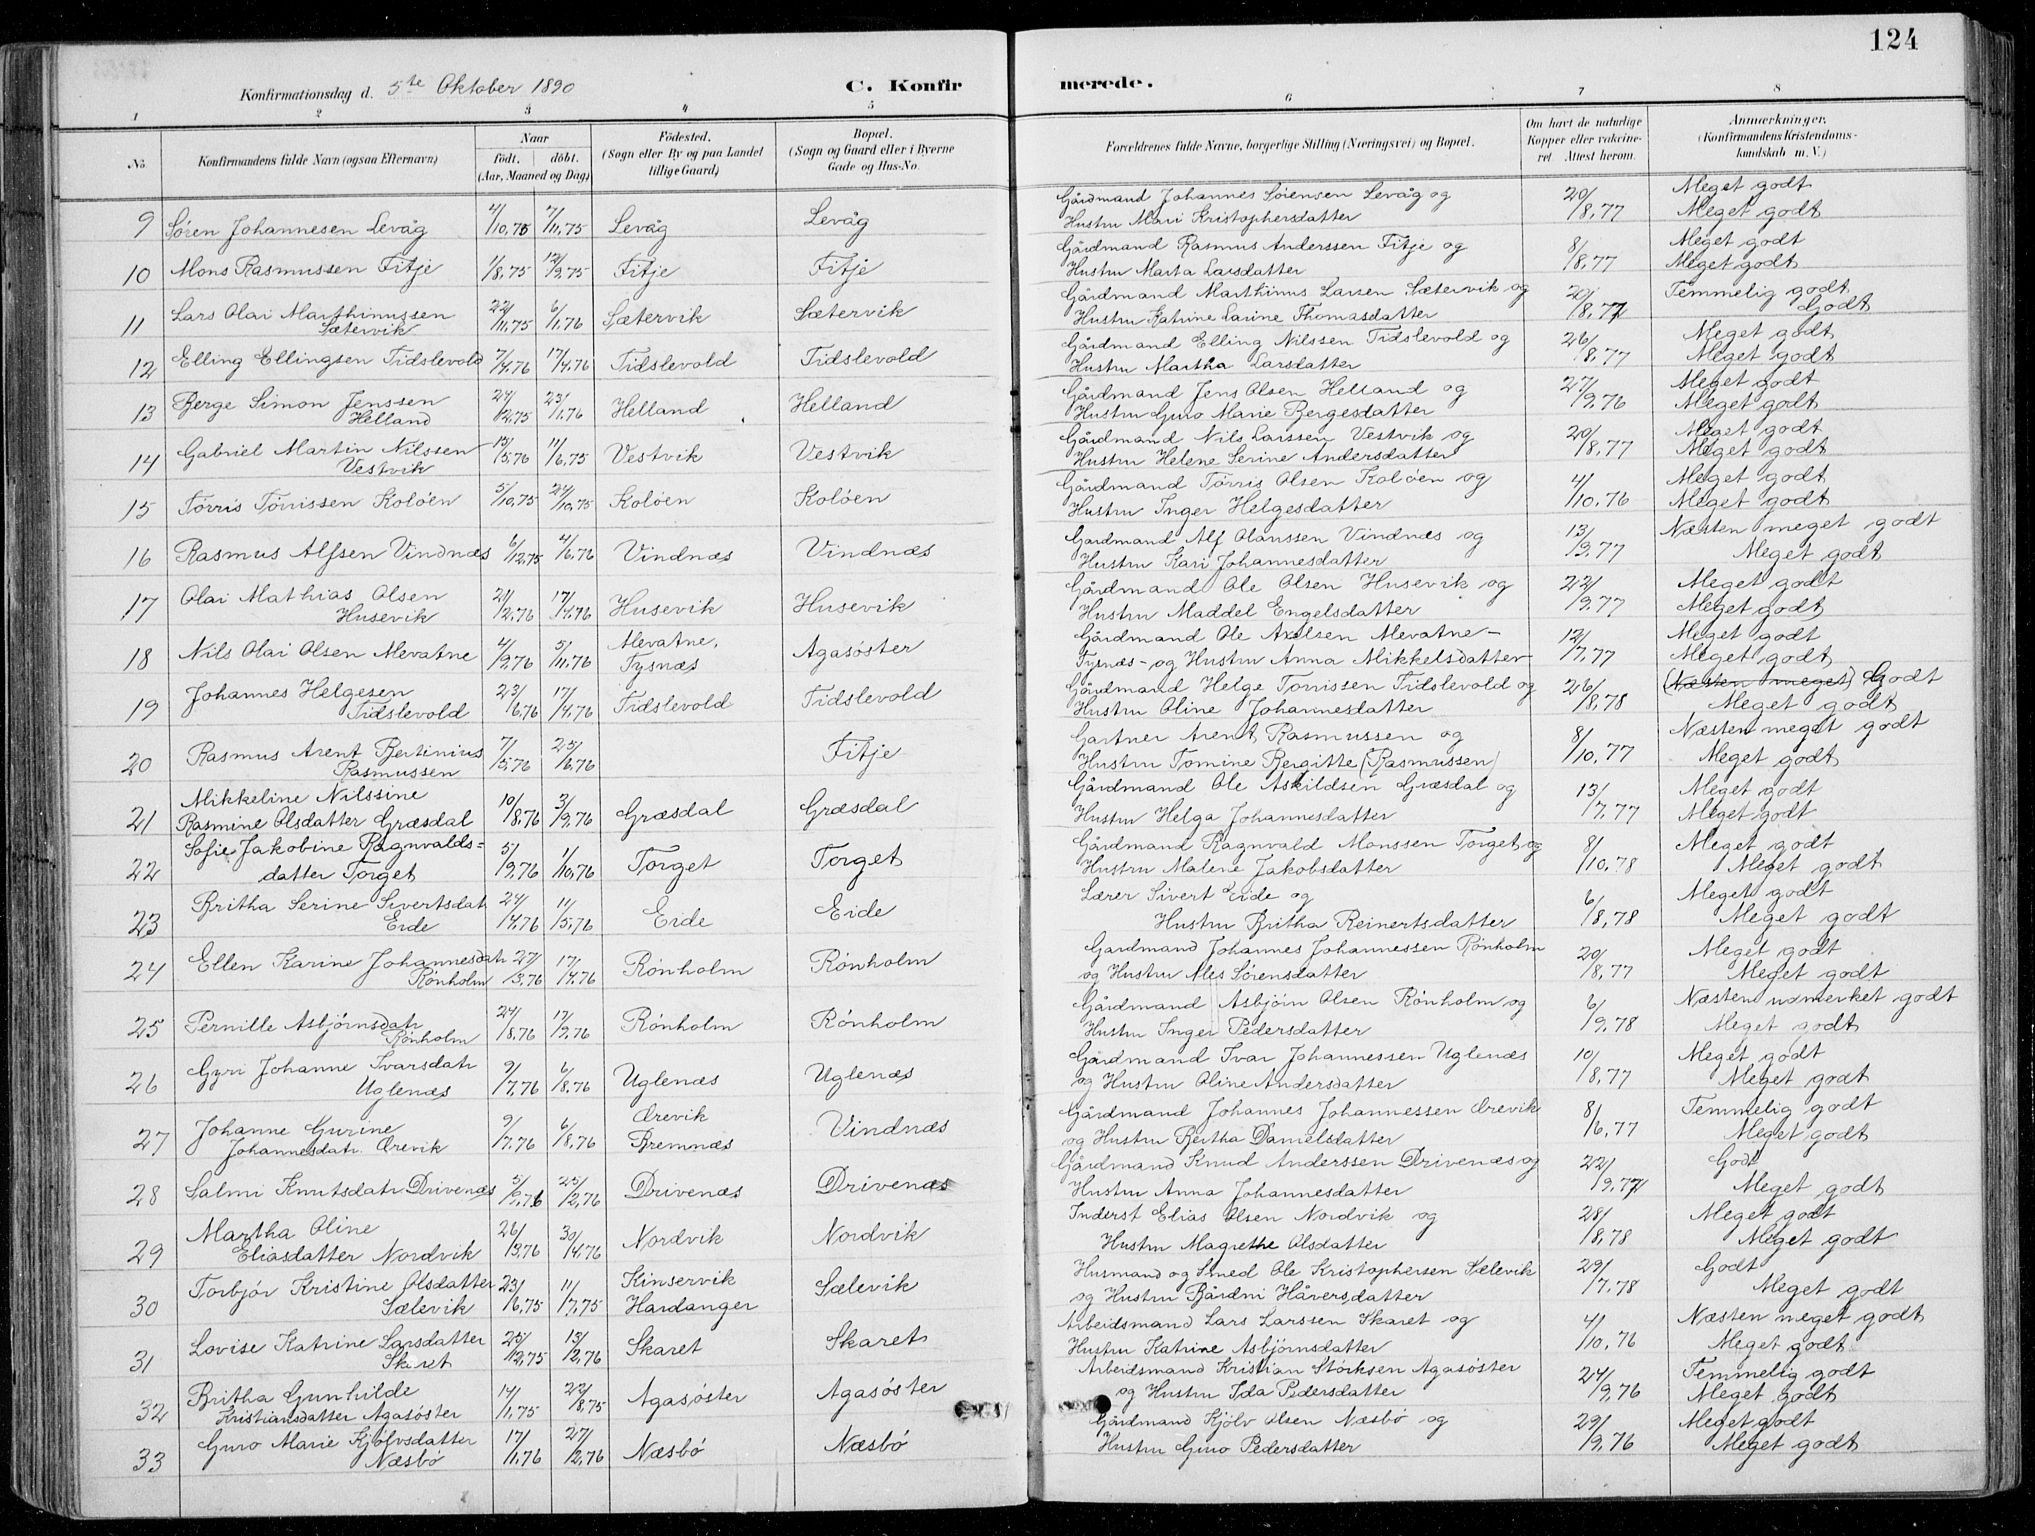 124
Konfirmationsdag d. 5te Oktober 1890 C. Konfirmerede.
1 2 3 4 5 6 7 8
No. Konfirmandens fulde Navn (ogsaa Efternavn) Naar født. døbt. (Aar, Maaned og Dag) Fødested. (Sogn eller By og paa Landet tillige Gaard) Bopæl. (Sogn og Gaard eller i Byerne Gade og Hus-No. Forældrenes fulde Navne, borgerlige Stilling (Næringsvei) og Bopæl. Om havt de naturlige Kopper eller vakcineret. Attest herom. Anmærkninger. (Konfirmandens Kristendomskundskab m. V.)
9 Søren Johannesen Levåg 4/10,75 7/11,75 Levåg Levåg Gårdmand Johannes Sørensen Levåg og 20/8,77 Meget godt
Hustru Mari Kristophersdatter Meget godt
10 Mons Rasmussen Fitje 1/8,75 12/9,75 Fitje Fitje Gårdmand Rasmus Anderssen Fitje og 8/8,77 Meget godt
Hustru Marta Larsdatter Meget godt
11 Lars Olai Marthinussen Sætervik 22/11,75 6/1,76 Sætervik Sætervik Gårdmand Marthinus Larsen Sætervik og 20/8,77 Temmelig godt
Hustru Katrine Larine Thomasdatter Godt
12 Elling Ellingsen Tidslevold 7/4,76 17/4,76 Tidslevold Tidslevold Gårdmand Elling Nilssen Tidslevold og 26/8,77 Meget godt
Hustru Martha Larsdatter Meget godt
13 Berge Simon Jenssen Helland 24/12,75 23/1,76 Helland Helland Gårdmand Jens Olsen Helland og 27/9,76 Meget godt
Hustru Guro Marie Bergesdatter Meget godt
14 Gabriel Martin Nilssen Vestvik 13/5,76 11/6,75 Vestvik Vestvik Gårdmand Nils Larssen Vestvik og 20/8,77 Meget godt
Hustru Helene Serine Andersdatter Meget godt
15 Tørris Tørrissen Koløen 5/10,75 24/10,75 Koløen Koløen Gårdmand Tørris Olsen Koløen og 4/10,76 Meget godt
Hustru Inger Helgesdatter Meget godt
16 Rasmus Alfsen Vindnæs 6/12,75 4/6,76 Vindnæs Vindnæs Gårdmand Alf Olanssen Vindnæs og 13/9,77 Næsten meget godt
Hustru Kari Johannesdatter Meget godt
17 Olai Mathias Olsen Husevik 21/2,76 17/4,76 Husevik Husevik Gårdmand Ole Olsen Husevik og 22/9,77 Meget godt
Hustru Maddel Engelsdatter Meget godt
18 Nils Olai Olsen Mevatne 4/9,76 5/11,76 Mevatne, Tysnæs Agasøster Gårdmand Ole Axelsen Mevatne- 12/7,77 Meget godt
Tysnæs- og Hustru Anna Mikkelsdatter Meget godt
19 Johannes Helgesen Tidslevold 23/6,76 17/4,76 Tidslevold Tidslevold Gårdmand Helge Torrissen Tidslevold og 26/8,78 (Næsten meget) Godt
Hustru Oline Johannesdatter Meget godt
20 Rasmus Arent Bertinius Rasmussen 7/5,76 25/6,76 Fitje Gartner Arent Rasmussen og 8/10,77 Næsten meget godt
Hustru Tomine Bergitte (Rasmussen) Meget godt
21 Mikkeline Nilssine Rasmine Olsdatter Græsdal 10/8,76 3/9,76 Græsdal Græsdal Gårdmand Ole Askildsen Græsdal og 13/7,77 Meget godt
Hustru Helga Johannesdatter Meget godt
22 Sofie Jakobine Ragnvalds= datter Torget 5/9,76 1/10,76 Torget Torget Gårdmand Ragnvald Monssen Torget og 8/10,78 Meget godt
Hustru Malene Jakobsdatter Meget godt
23 Britha Serine Sivertsdatr Eide 24/4,76 11/5,76 Eide Eide Lærer Sivert Eide og 6/8,78 Meget godt
Hustru Britha Reinertsdatter Meget godt
24 Ellen Karine Johannesdatr Rønholm 27/3,76 17/4,76 Rønholm Rønholm Gardmand Johannes Johannessen Rønholm 20/8,77 Meget godt
og Hustru Ales Sørensdatter Meget godt
25 Pernille Asbjørnsdatr Rønholm 24/8,76 17/9,76 Rønholm Rønholm Gårdmand Asbjørn Olsen Rønholm og 6/9,78 Næsten udmerket godt
Hustru Inger Pedersdatter Meget godt
26 Gyri Johanne Ivarsdatr Uglenæs 9/7,76 6/8,76 Uglenæs Uglenæs Gårdmand Ivar Johannessen Uglenæs 10/8,77 Meget godt
og Hustru Oline Andersdatter Meget godt
27 Johanne Gurine Johannesdatr. Ørevik 9/7,76 6/8,76 Ørevik Bremnæs Vindnæs Gårdmand Johannes Johannessen Ørevik 8/6,77 Temmelig godt
og Hustru Bertha Danielsdatter Meget godt
28 Salmi Knutsdatr Drivenæs 5/2,76 25/2,76 Drivenæs Drivenæs Gårdmand Knud Anderssen Drivenæs og 22/9,77 Godt
Hustru Anna Johannesdatter Meget godt
29 Martha Oline Eliasdatter Nordvik 26/3,76 30/4,76 Nordvik Nordvik Inderst Elias Olsen Nordvik og 28/8,78 Meget godt
Hustru Magrethe Olsdatter Meget godt
30 Torbjør Kristine Olsdatter Sælevik 23/6,75 11/7,75 Kinservik Hardanger Sælevik Husmand og Smed Ole Kristophersen Sælevik 29/7,78 Godt
og Hustru Bårdni Håversdatter Meget godt
31 Lovise Katrine Larsdatter Skaret 25/12,75 13/2,76 Skaret Skaret Arbeidsmand Lars Larssen Skaret og 4/10,76 Næsten meget godt
Hustru Katrine Asbjørnsdatter Meget godt
32 Britha Gunhilde Kristiansdatter Agasøster 14/1,75 22/8,75 Agasøster Agasøster Arbeidsmand Kristian Størksen Agasøster 24/9,76 Temmelig godt
og Hustru Ida Pedersdatter Meget godt
33 Guro Marie Kjølvsdatter Næsbø 17/1,76 27/2,76 Næsbø Næsbø Gårdmand Kjølv Olsen Næsbø og 29/9,76 Meget godt
Hustru Guro Pedersdatter Meget godt